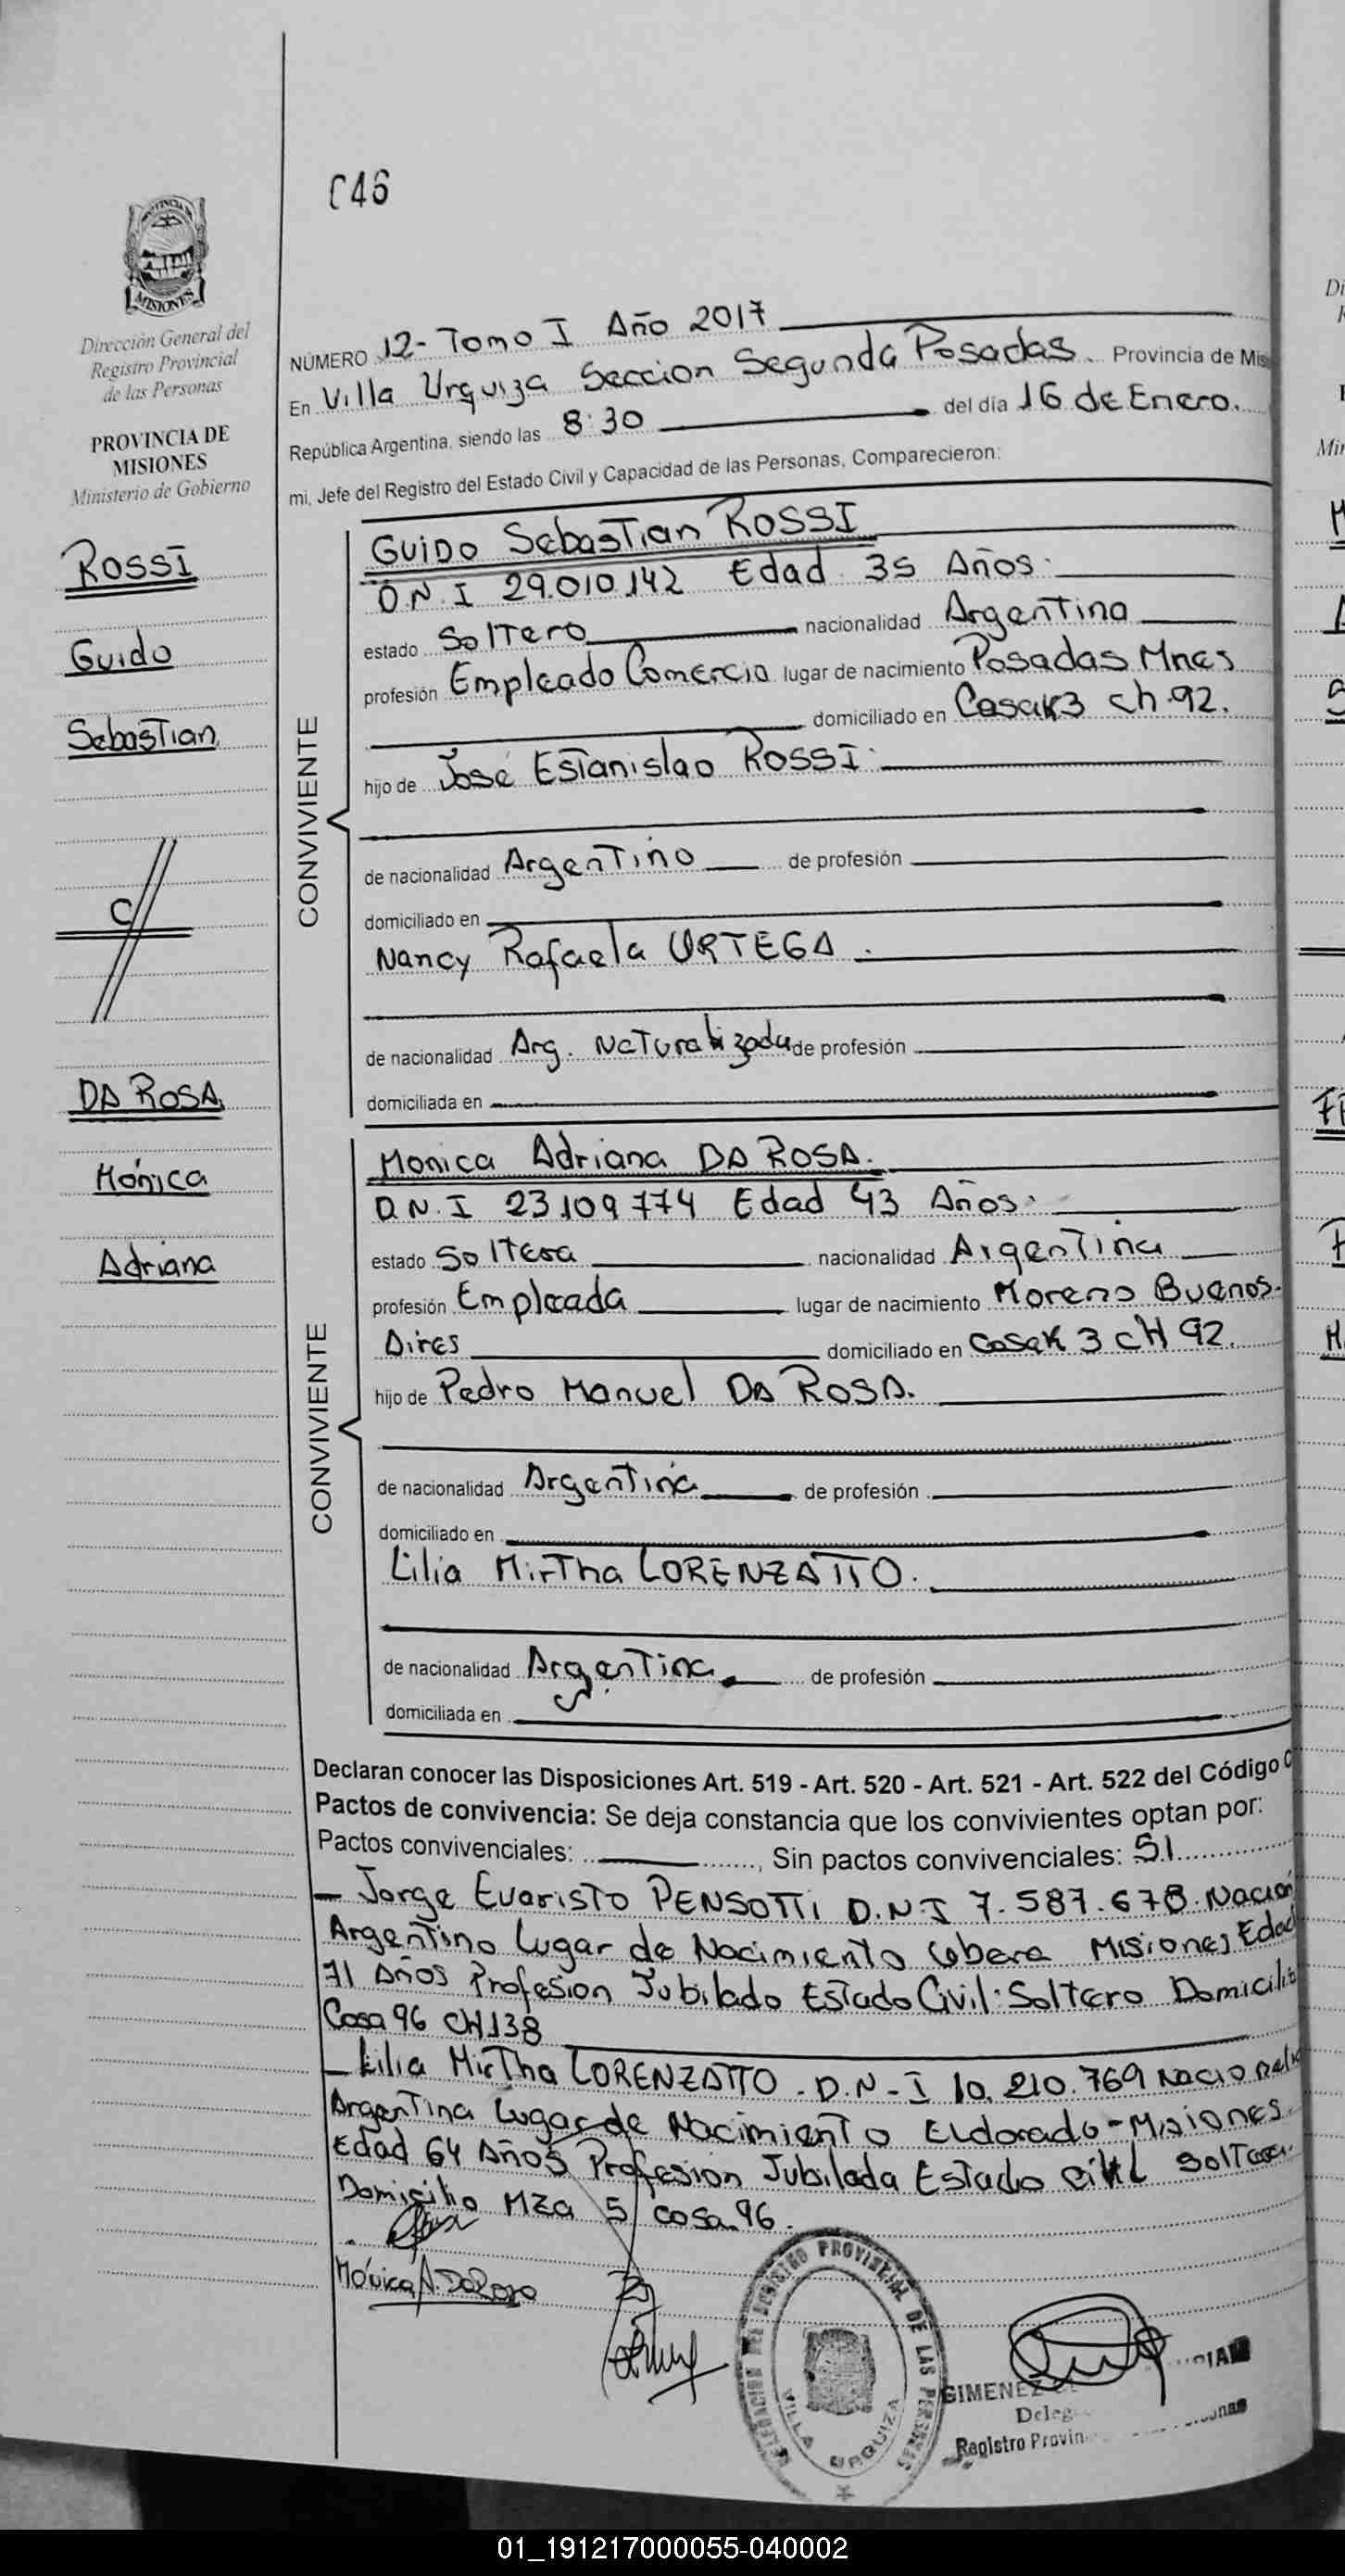 C46
PROVINCIA DE
MISIONES
Dirección General del
Registro Provincial
de las Personas
PROVINCIA DE
MISIONES
Ministerio de Gobierno
ROSSI
Guido
Sebastian
C/
DA ROSA
Mónica
Adriana
NÚMERO 12- Tomo I Año 2017
En Villa Urquiza Seccion Segunda Posadas. Provincia de Mis
República Argentina, siendo las 8:30 del día 16 de Enero.
mi, Jefe del Registro del Estado Civil y Capacidad de las Personas, Comparecieron:
CONVIVIENTE
Guido Sebastian ROSSI
D.N.I 29.010.142 Edad 35 Años.
estado Soltero nacionalidad Argentina
profesión Empleado Comercio lugar de nacimiento Posadas Mnes
domiciliado en Casa K3 ch.92.
hijo de José Estanislao ROSSI.
de nacionalidad Argentino de profesión
domiciliado en
Nancy Rafaela ORTEGA.
de nacionalidad Arg. Naturalizada de profesión
domiciliada en
CONVIVIENTE
Monica Adriana DA ROSA.
D.N.I 23109774 Edad 43 Años.
estado Soltera nacionalidad Argentina
profesión Empleada lugar de nacimiento Moreno Buenos
Aires domiciliado en Casa K 3 CH 92.
hijo de Pedro Manuel DA ROSA.
de nacionalidad Argentina de profesión
domiciliado en
Lilia Mirtha LORENZATTO.
de nacionalidad Argentina de profesión
domiciliada en
Declaran conocer las Disposiciones Art. 519 - Art. 520 - Art. 521 - Art. 522 del Código C
Pactos de convivencia: Se deja constancia que los convivientes optan por:
Pactos convivenciales: ........, Sin pactos convivenciales: SI
- Jorge Evaristo PENSOTTI D.N.I 7.587.678. Nacion
Argentino Lugar de Nacimiento Obera Misiones Edad
71 Años Profesion Jubilado Estado Civil: Soltero Domicilio
Casa 96 CH138
- Lilia Mirtha LORENZATTO - D.N-I 10.210.769 Nacionali
Argentina Lugar de Nacimiento Eldorado - Misiones
Edad 64 Años Profesion Jubilada Estado Civil Soltera.
Domicilio MZA 5 casa 96.
Mónica A. Da Rosa
DELEGACION DEL REGISTRO PROVINCIAL DE LAS PERSONAS
VILLA URQUIZA
GIMENEZ
Deleg
Registro Provin
01_191217000055-040002